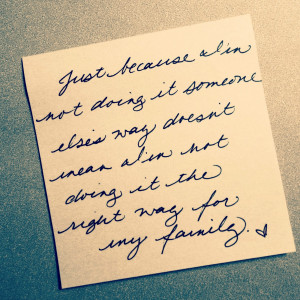 Just because I'm
not doing it someone
else's way doesn't
mean I'm not
doing it the
right way for
my family.